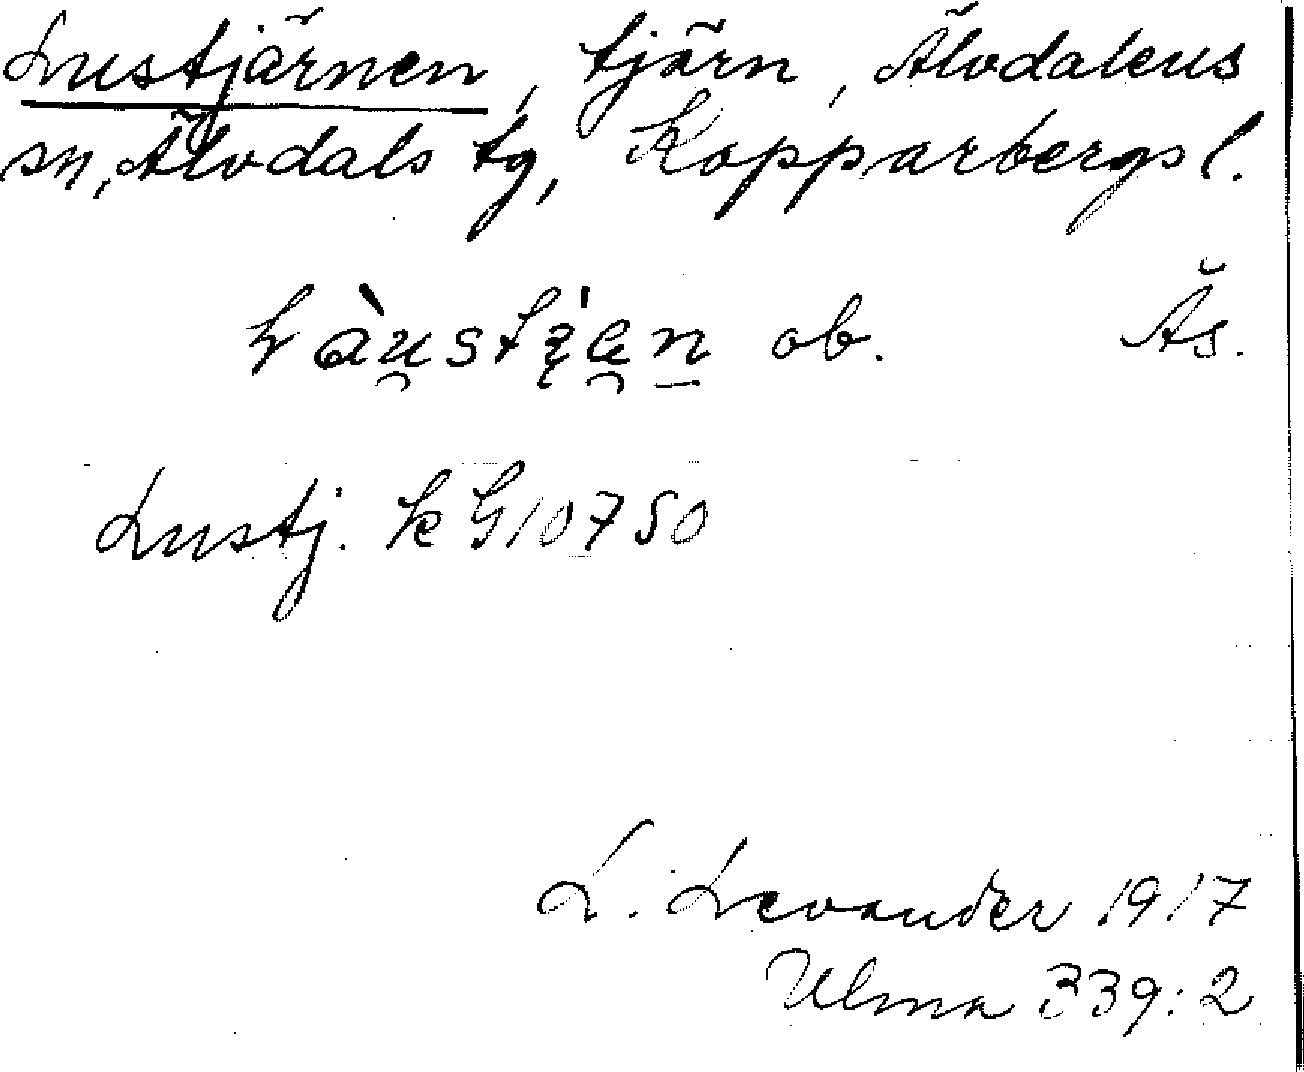 Lustjärnen, tjärn, Älvdalens
sn, Älvdals tg, Kopparbergs l.
ob. Ås.
Lustj. k G10750
L. Levander 1917
Ulma 339:2